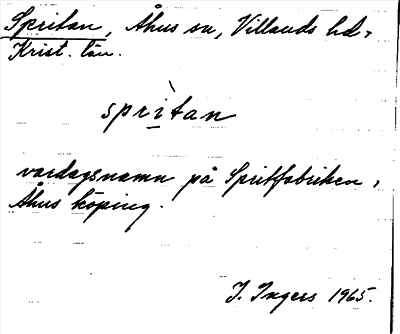 Spritan, Åhus sn, Villands hd,
Krist. län.
sprìtan
vardagsnamn på Spritfabriken,
Åhus köping.
I. Ingers 1965.